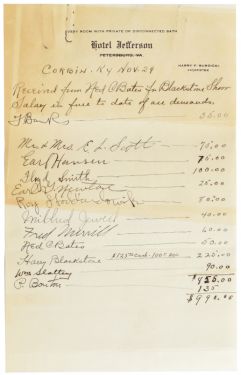 EVERY ROOM WITH PRIVATE OR CONNECTED BATH
Hotel Jefferson
PETERSBURG, VA.
HARRY P.
CORBIN. KY NOV. 29
Received from Ned C Bates for Blackstone Show
Salary in full to date of all demands.
35.00
Mr & Mrs E L Scott 75.00
Earl Hansen 75.00
Lloyd Smith 100.00
25.00
Roy 50.00
Mildred Jewell 40.00
Fred Merrill 60.00
Ned C Bates 50.00
Harry Blackstone $125.00 cash - 100.00 225.00
Wm Slattery 90.00
P. Bonton
$990.00